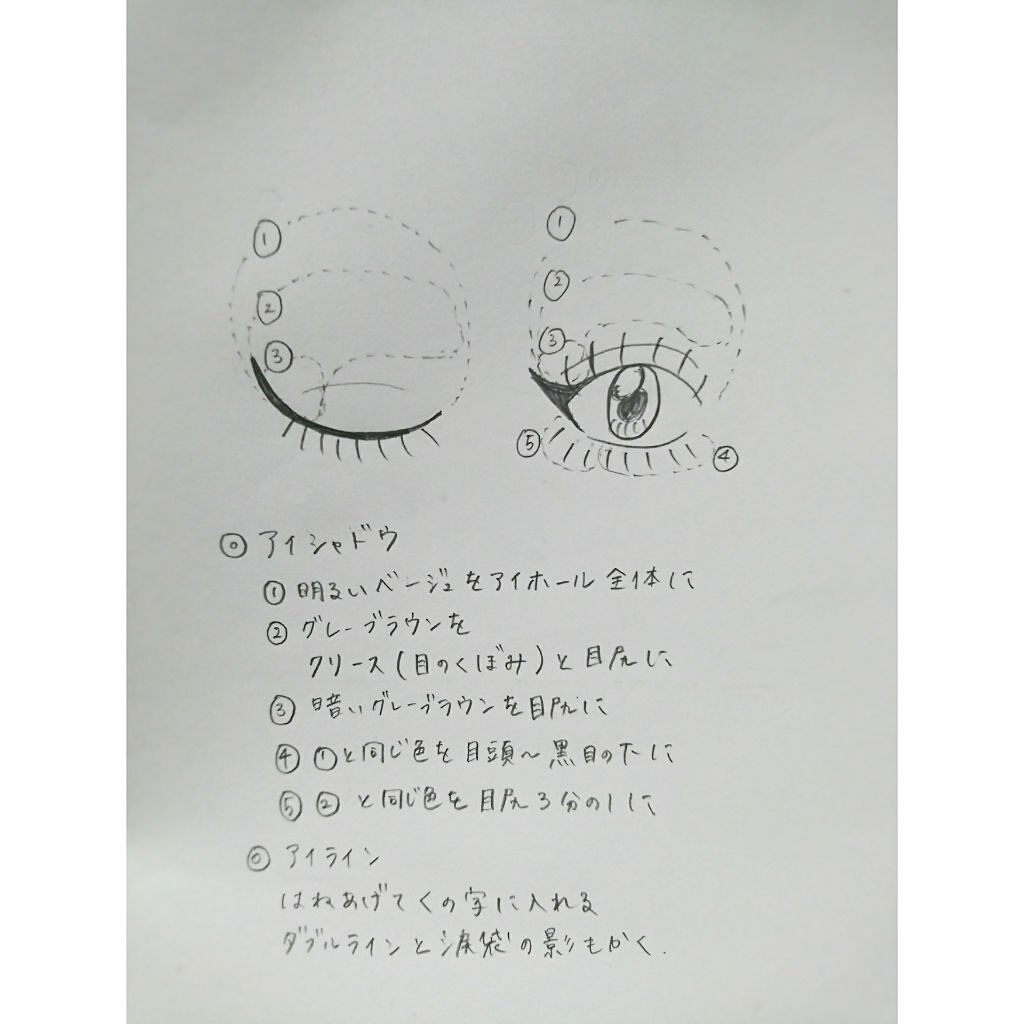 ① ①
② ②
③ ③
⑤ ④
◎ アイシャドウ
① 明るいベージュをアイホール全体に
② グレーブラウンを
クリース(目のくぼみ)と目尻に
③ 暗いグレーブラウンを目尻に
④ ①と同じ色を目頭~黒目の下に
⑤ ②と同じ色を目尻3分の1に
◎ アイライン
はねあげてくの字に入れる
ダブルラインと涙袋の影もかく.